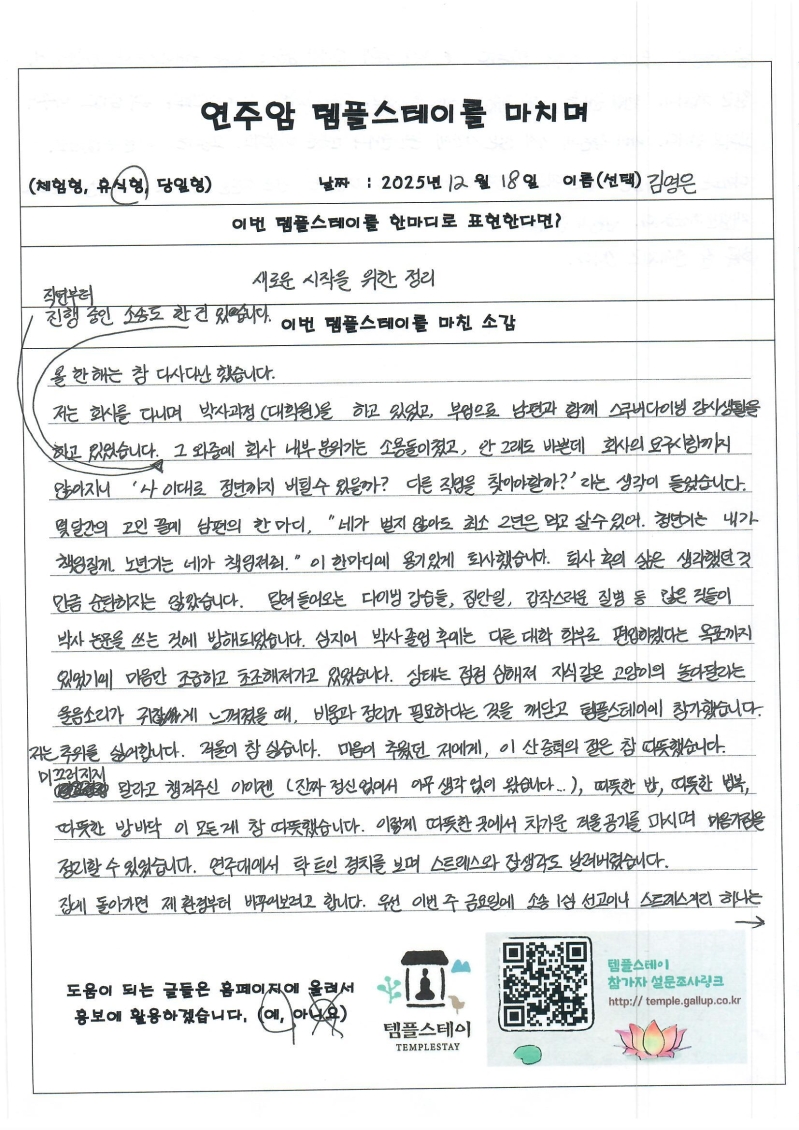 연주암 템플스테이를 마치며
(체험형, 휴식형, 당일형) 날짜 : 2025년 12월 18일 이름(선택) 김영은
이번 템플스테이를 한마디로 표현한다면?
새로운 시작을 위한 정리
작년부터
진행 중인 소송도 한 건 있었습니다.
이번 템플스테이를 마친 소감
올 한해는 참 다사다난 했습니다.
저는 회사를 다니며 박사과정(대학원)을 하고 있었고, 부업으로 남편과 함께 스쿠버다이빙 강사생활을
하고 있었습니다. 그 와중에 회사 내부 분위기는 소용돌이쳤고, 안 그래도 바쁜데 회사의 요구사항까지
많아지니 '나 이대로 정년까지 버틸 수 있을까? 다른 직업을 찾아야할까?' 라는 생각이 들었습니다.
몇 달간의 고민 끝에 남편의 한 마디, "네가 벌지 않아도 최소 2년은 먹고 살 수 있어. 청년기는 내가
책임질게. 노년기는 네가 책임져줘." 이 한마디에 용기있게 퇴사했습니다. 퇴사 후의 삶은 생각했던 것
만큼 순탄하지는 않았습니다. 밀려 들어오는 다이빙 강습들, 집안일, 갑작스러운 질병 등 많은 것들이
박사 논문을 쓰는 것에 방해되었습니다. 심지어 박사 졸업 후에는 다른 대학 학부로 편입하겠다는 목표까지
있었기에 마음만 조급하고 초조해져가고 있었습니다. 상태는 점점 심해져 자식같은 고양이의 놀아달라는
울음소리가 귀찮게 느껴졌을 때, 비움과 정리가 필요하다는 것을 깨닫고 템플스테이에 참가했습니다.
저는 추위를 싫어합니다. 겨울이 참 싫습니다. 마음이 추웠던 저에게, 이 산중턱의 절은 참 따뜻했습니다.
미끄러지지
말라고 챙겨주신 아이젠 (진짜 정신없어서 아무 생각 없이 왔습니다...), 따뜻한 밥, 따뜻한 법복,
따뜻한 방바닥 이 모든게 참 따뜻했습니다. 이렇게 따뜻한 곳에서 차가운 겨울 공기를 마시며 마음가짐을
정리할 수 있었습니다. 연주대에서 탁 트인 경치를 보며 스트레스와 잡생각도 날려버렸습니다.
집에 돌아가면 제 환경부터 바꾸어보려고 합니다. 우선 이번 주 금요일에 소송 1심 선고이니 스트레스거리 하나는
도움이 되는 글들은 홈페이지에 올려서
홍보에 활용하겠습니다. (예, 아니요)
템플스테이
TEMPLESTAY
템플스테이
참가자 설문조사링크
http:// temple.gallup.co.kr